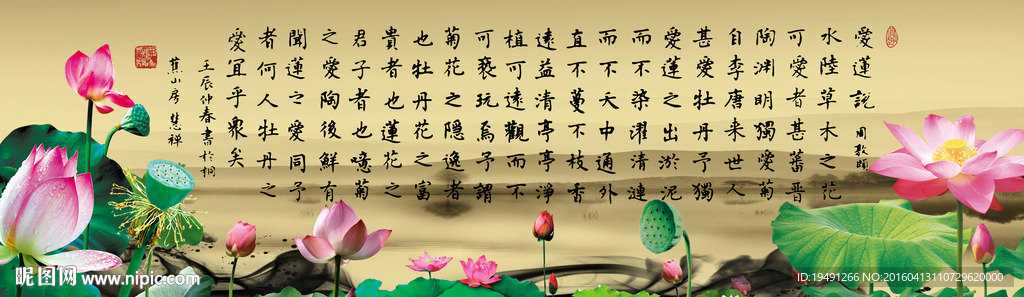 愛蓮說
周敦頤
水陸草木之花
可愛者甚蕃晉
陶渊明獨愛菊
自李唐来世人
甚愛牡丹予獨
愛蓮之出淤泥
而不染濯清連
而不夭中通外
直不蔓不枝香
遠益清亭亭淨
植可遠觀而不
可褻玩焉予謂
菊花之隱逸者
也牡丹花之富
貴者也蓮花之
君子者也噫菊
之愛陶後鮮有
聞蓮之愛同予
者何人牡丹之
愛宜乎衆矣
壬辰仲春書於桐
蕉山房慧禪
昵图网 www.nipic.com
ID:19491266 NO:20160413110729620000